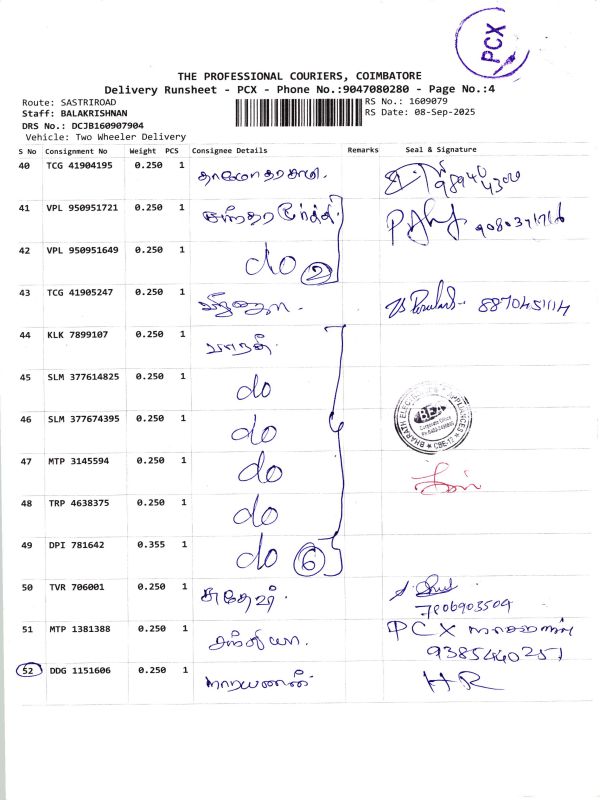 PCX
THE PROFESSIONAL COURIERS, COIMBATORE
Delivery Runsheet - PCX - Phone No.:9047080280 - Page No.:4
Route: SASTRIROAD
RS No.: 1609079
Staff: BALAKRISHNAN
RS Date: 08-Sep-2025
DRS No.: DCJB160907904
Vehicle: Two Wheeler Delivery
S No Consignment No Weight PCS Consignee Details Remarks Seal & Signature
40 TCG 41904195 0.250 1 தாமோதரசாமி.
41 VPL 950951721 0.250 1
42 VPL 950951649 0.250 1 do 2
43 TCG 41905247 0.250 1 8870451114
44 KLK 7899107 0.250 1 பாரதி.
45 SLM 377614825 0.250 1 do
46 SLM 377674395 0.250 1 do
BHARATH ELECTRONICS & APPLIANCES
BEA
Corporate Office
CBE-12
47 MTP 3145594 0.250 1 do
48 TRP 4638375 0.250 1 do
49 DPI 781642 0.355 1 do 6
50 TVR 706001 0.250 1 சுதேவர்.
7806903504
51 MTP 1381388 0.250 1 PCX
9385440251
52 DDG 1151606 0.250 1 நாராயணன் HR